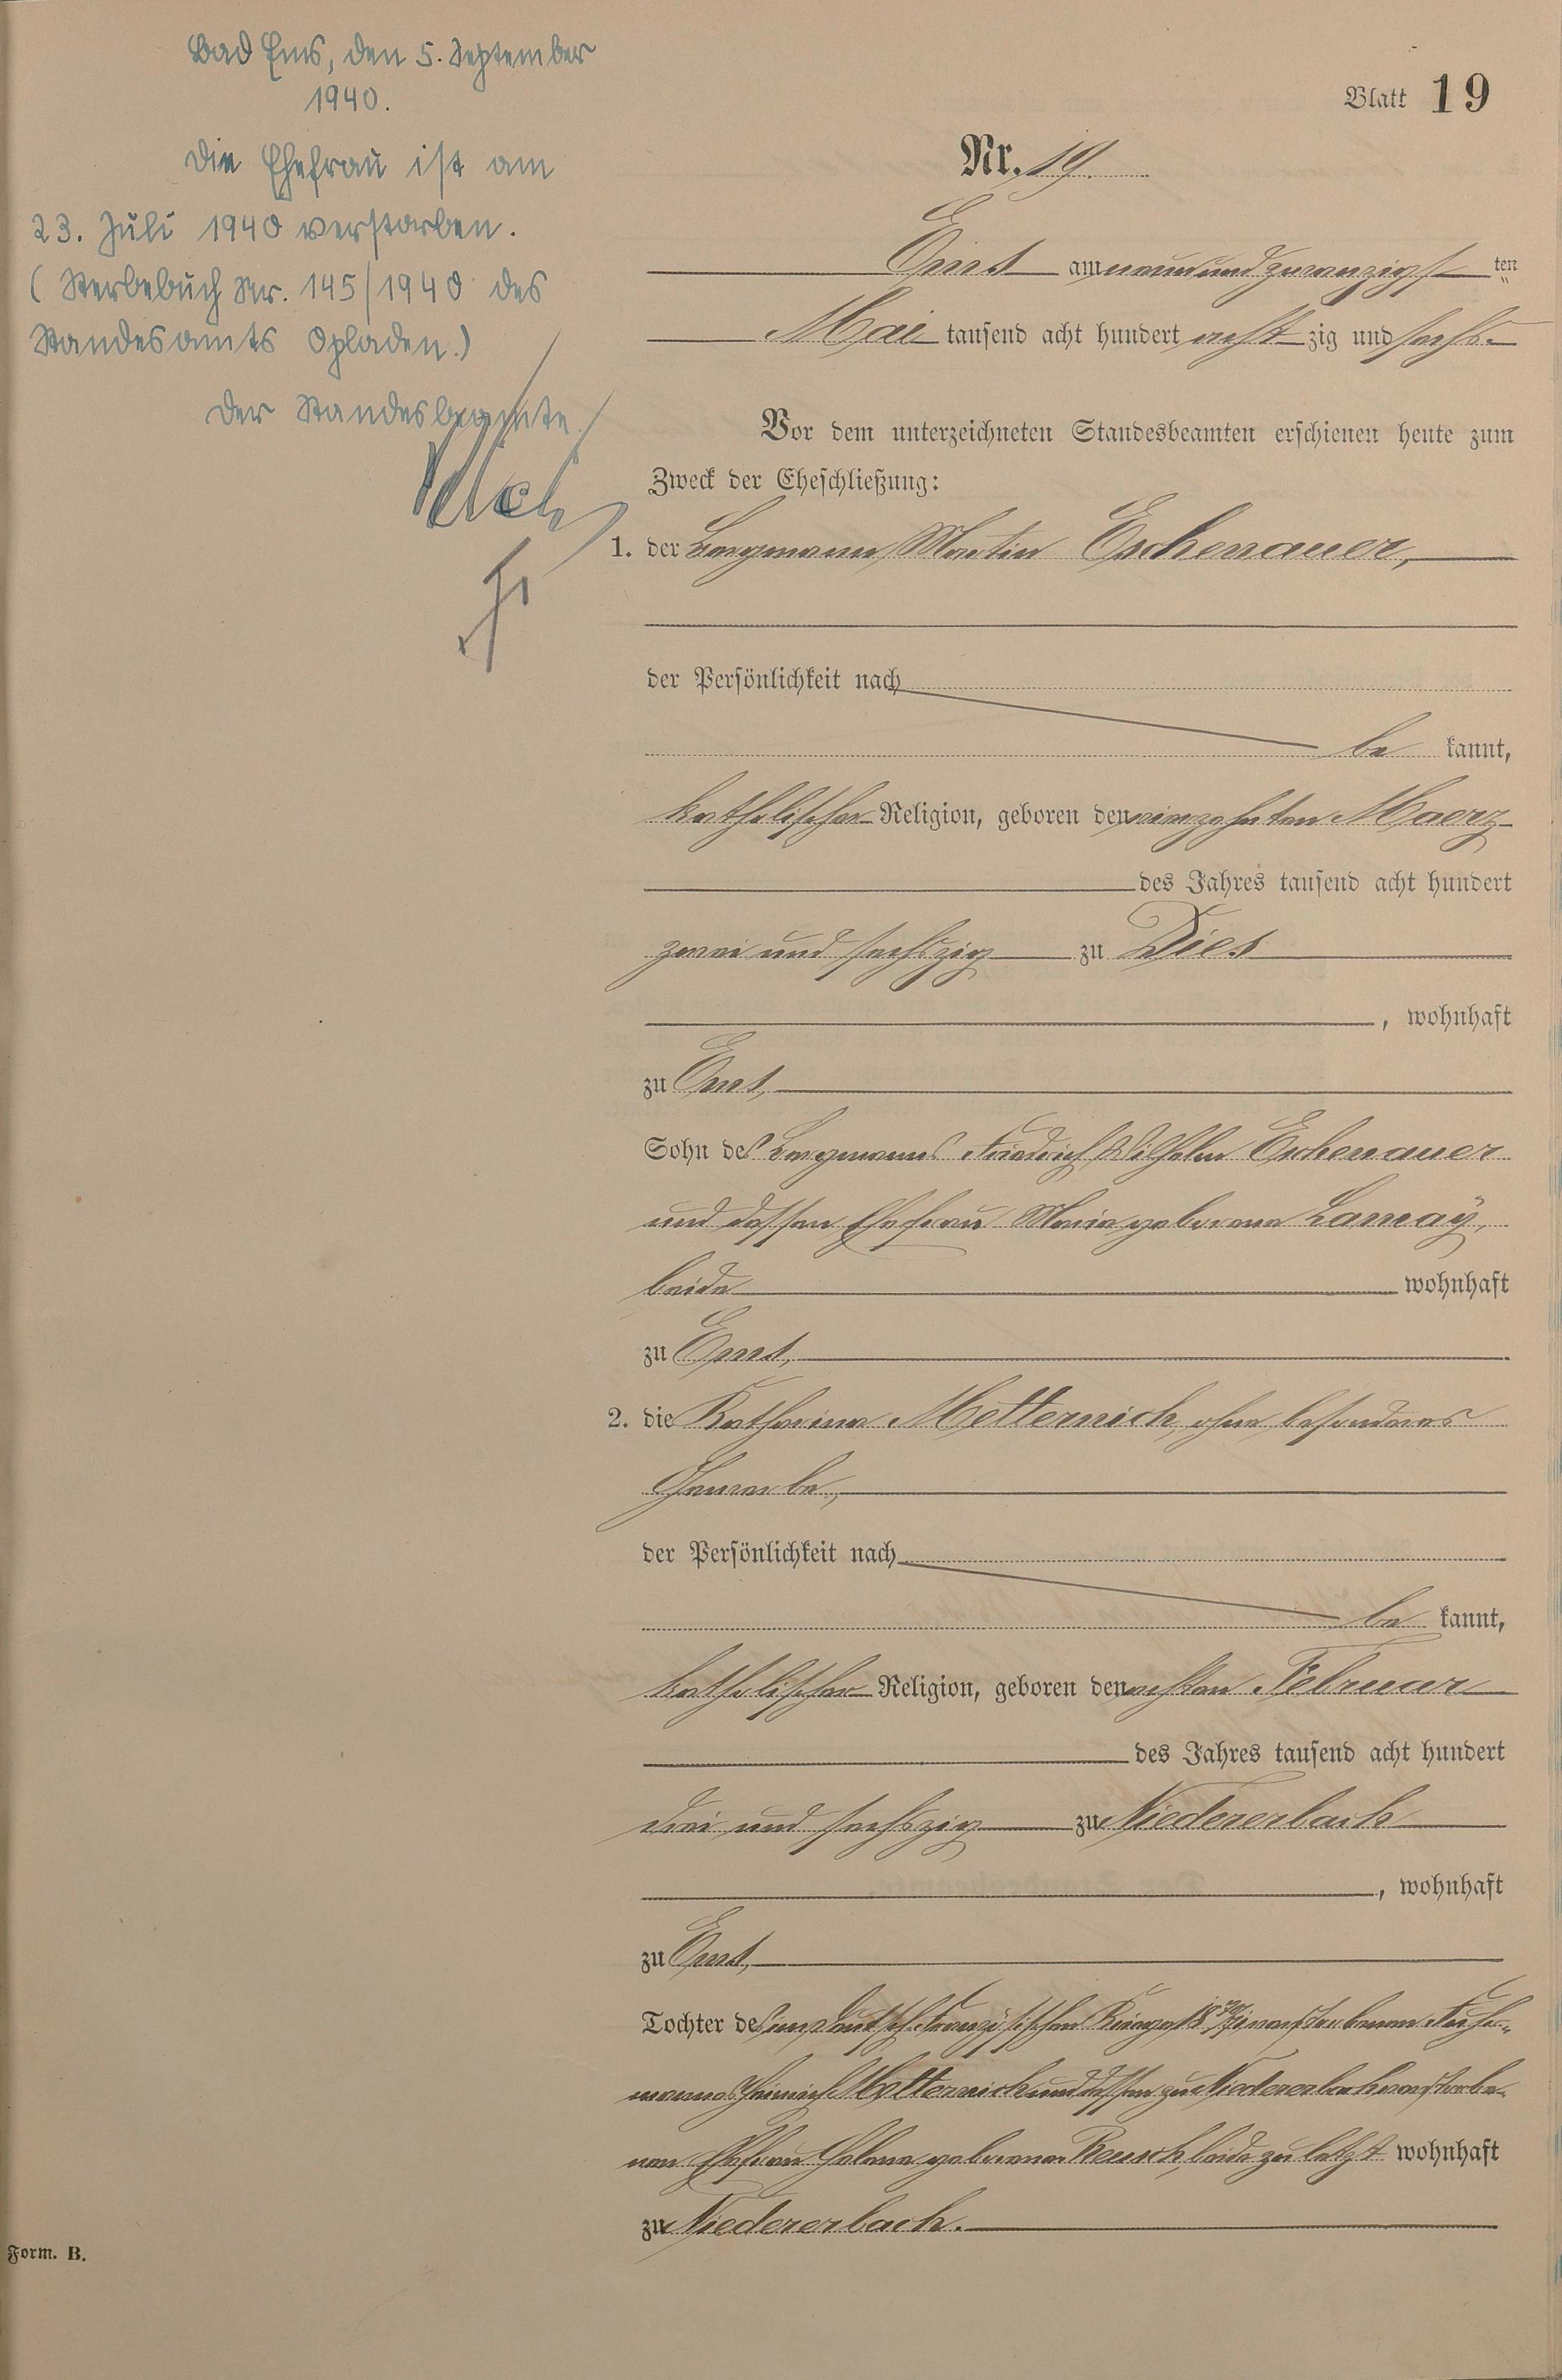 Bad Ems, den 5. September
1940.
Die Ehefrau ist am
23. Juli 1940 verstorben.
(Sterbebuch Nr. 145/1940 des
Standesamts Opladen.)
Der Standesbeamte
Blatt 19
Nr. 19.
Ems am neunundzwanzigsten
Mai tausend acht hundert achtzig und sechs.
Vor dem unterzeichneten Standesbeamten erschienen heute zum
Zweck der Eheschließung:
1. der Bergmann Martin Eschenauer,
der Persönlichkeit nach
be kannt,
katholischer Religion, geboren den Maerz
des Jahres tausend acht hundert
zwei und sechszig zu Diez
, wohnhaft
zu Ems,
Sohn des Bergmanns Friedrich Wilhelm Eschenauer
und dessen Ehefrau Maria geborene Lamaÿ,
beide wohnhaft
zu Ems,
2. die Katharina Metternich, ohne besonderes
Gewerbe,
der Persönlichkeit nach
be kannt,
katholischer Religion, geboren den achten Februar
des Jahres tausend acht hundert
drei und sechszig zu Niedererbach
, wohnhaft
zu Ems,
Tochter des im deutsch-französischen Kriege 1870/71 verstorbenen Fuhr-
manns Heinrich Metternich und dessen zu Niedererbach verstorbe-
nen Ehefrau Helena geborener Reusch, beide zuletzt wohnhaft
zu Niedererbach.
Form. B.